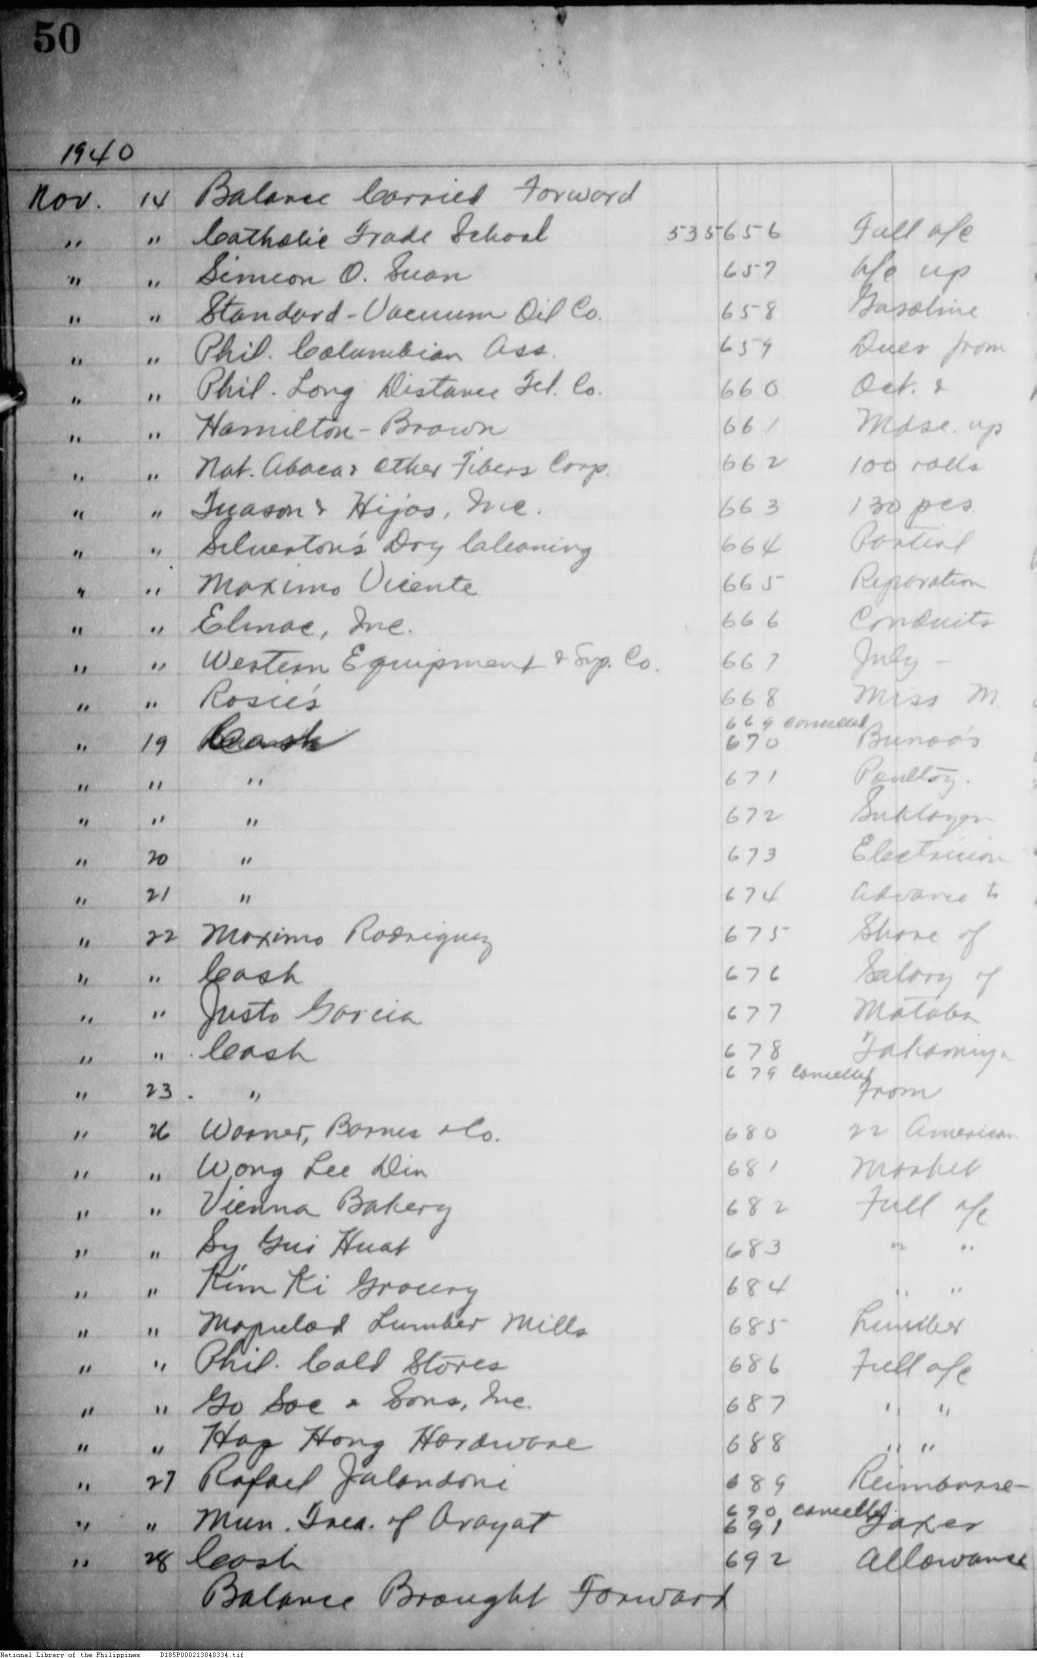 50
1940
Nov. 14 Balance Carried Forward
" " Catholic Trade School 535656 Full a/c
" " Simeon O. Suan 657 a/c up
" " Standard-Vacuum Oil Co. 658 Gasoline
" " Phil. Columbian Ass. 659 Dues from
" " Phil. Long Distance Tel. Co. 660 Oct. &
" " Hamilton-Brown 661 Mdse. up
" " Nat. Abaca & Other Fibers Corp. 662 100 rolls
" " Tuason & Hijos, Inc. 663 130 pcs.
" " Silverton's Dry Cleaning 664 Partial
" " Maximo Vicente 665 Reparation
" " Elmac, Inc. 666 Conduits
" " Western Equipment & Sup. Co. 667 July -
" " Rosie's 668 Miss M.
669 cancelled
" 19 Cash 670
" " " 671 Poultry.
" " " 672
" 20 " 673 Electrician
" 21 " 674 Advance to
" 22 Maximo Rodriguez 675 Share of
" " Cash 676 Salary of
" " Justo Garcia 677 Mataba
" " Cash 678
679 cancelled
" 23 " From
" 26 Warner, Barnes & Co. 680 22 American
" " Wong Lee Din 681 Market
" " Vienna Bakery 682 Full a/c
" " Sy Gui Huat 683 " "
" " Kim Ki Grocery 684 " "
" " Mapulad Lumber Mills 685 Lumber
" " Phil. Cold Stores 686 Full a/c
" " Go Soc & Sons, Inc. 687 " "
" " Hap Hong Hardware 688 " "
" 27 Rafael Jalandoni 689 Reimburse-
690 cancelled
" " Mun. Trea. of Arayat 691 Taxes
" 28 Cash 692 Allowance
Balance Brought Forward
National Library of the Philippines D185P000213040334.tif